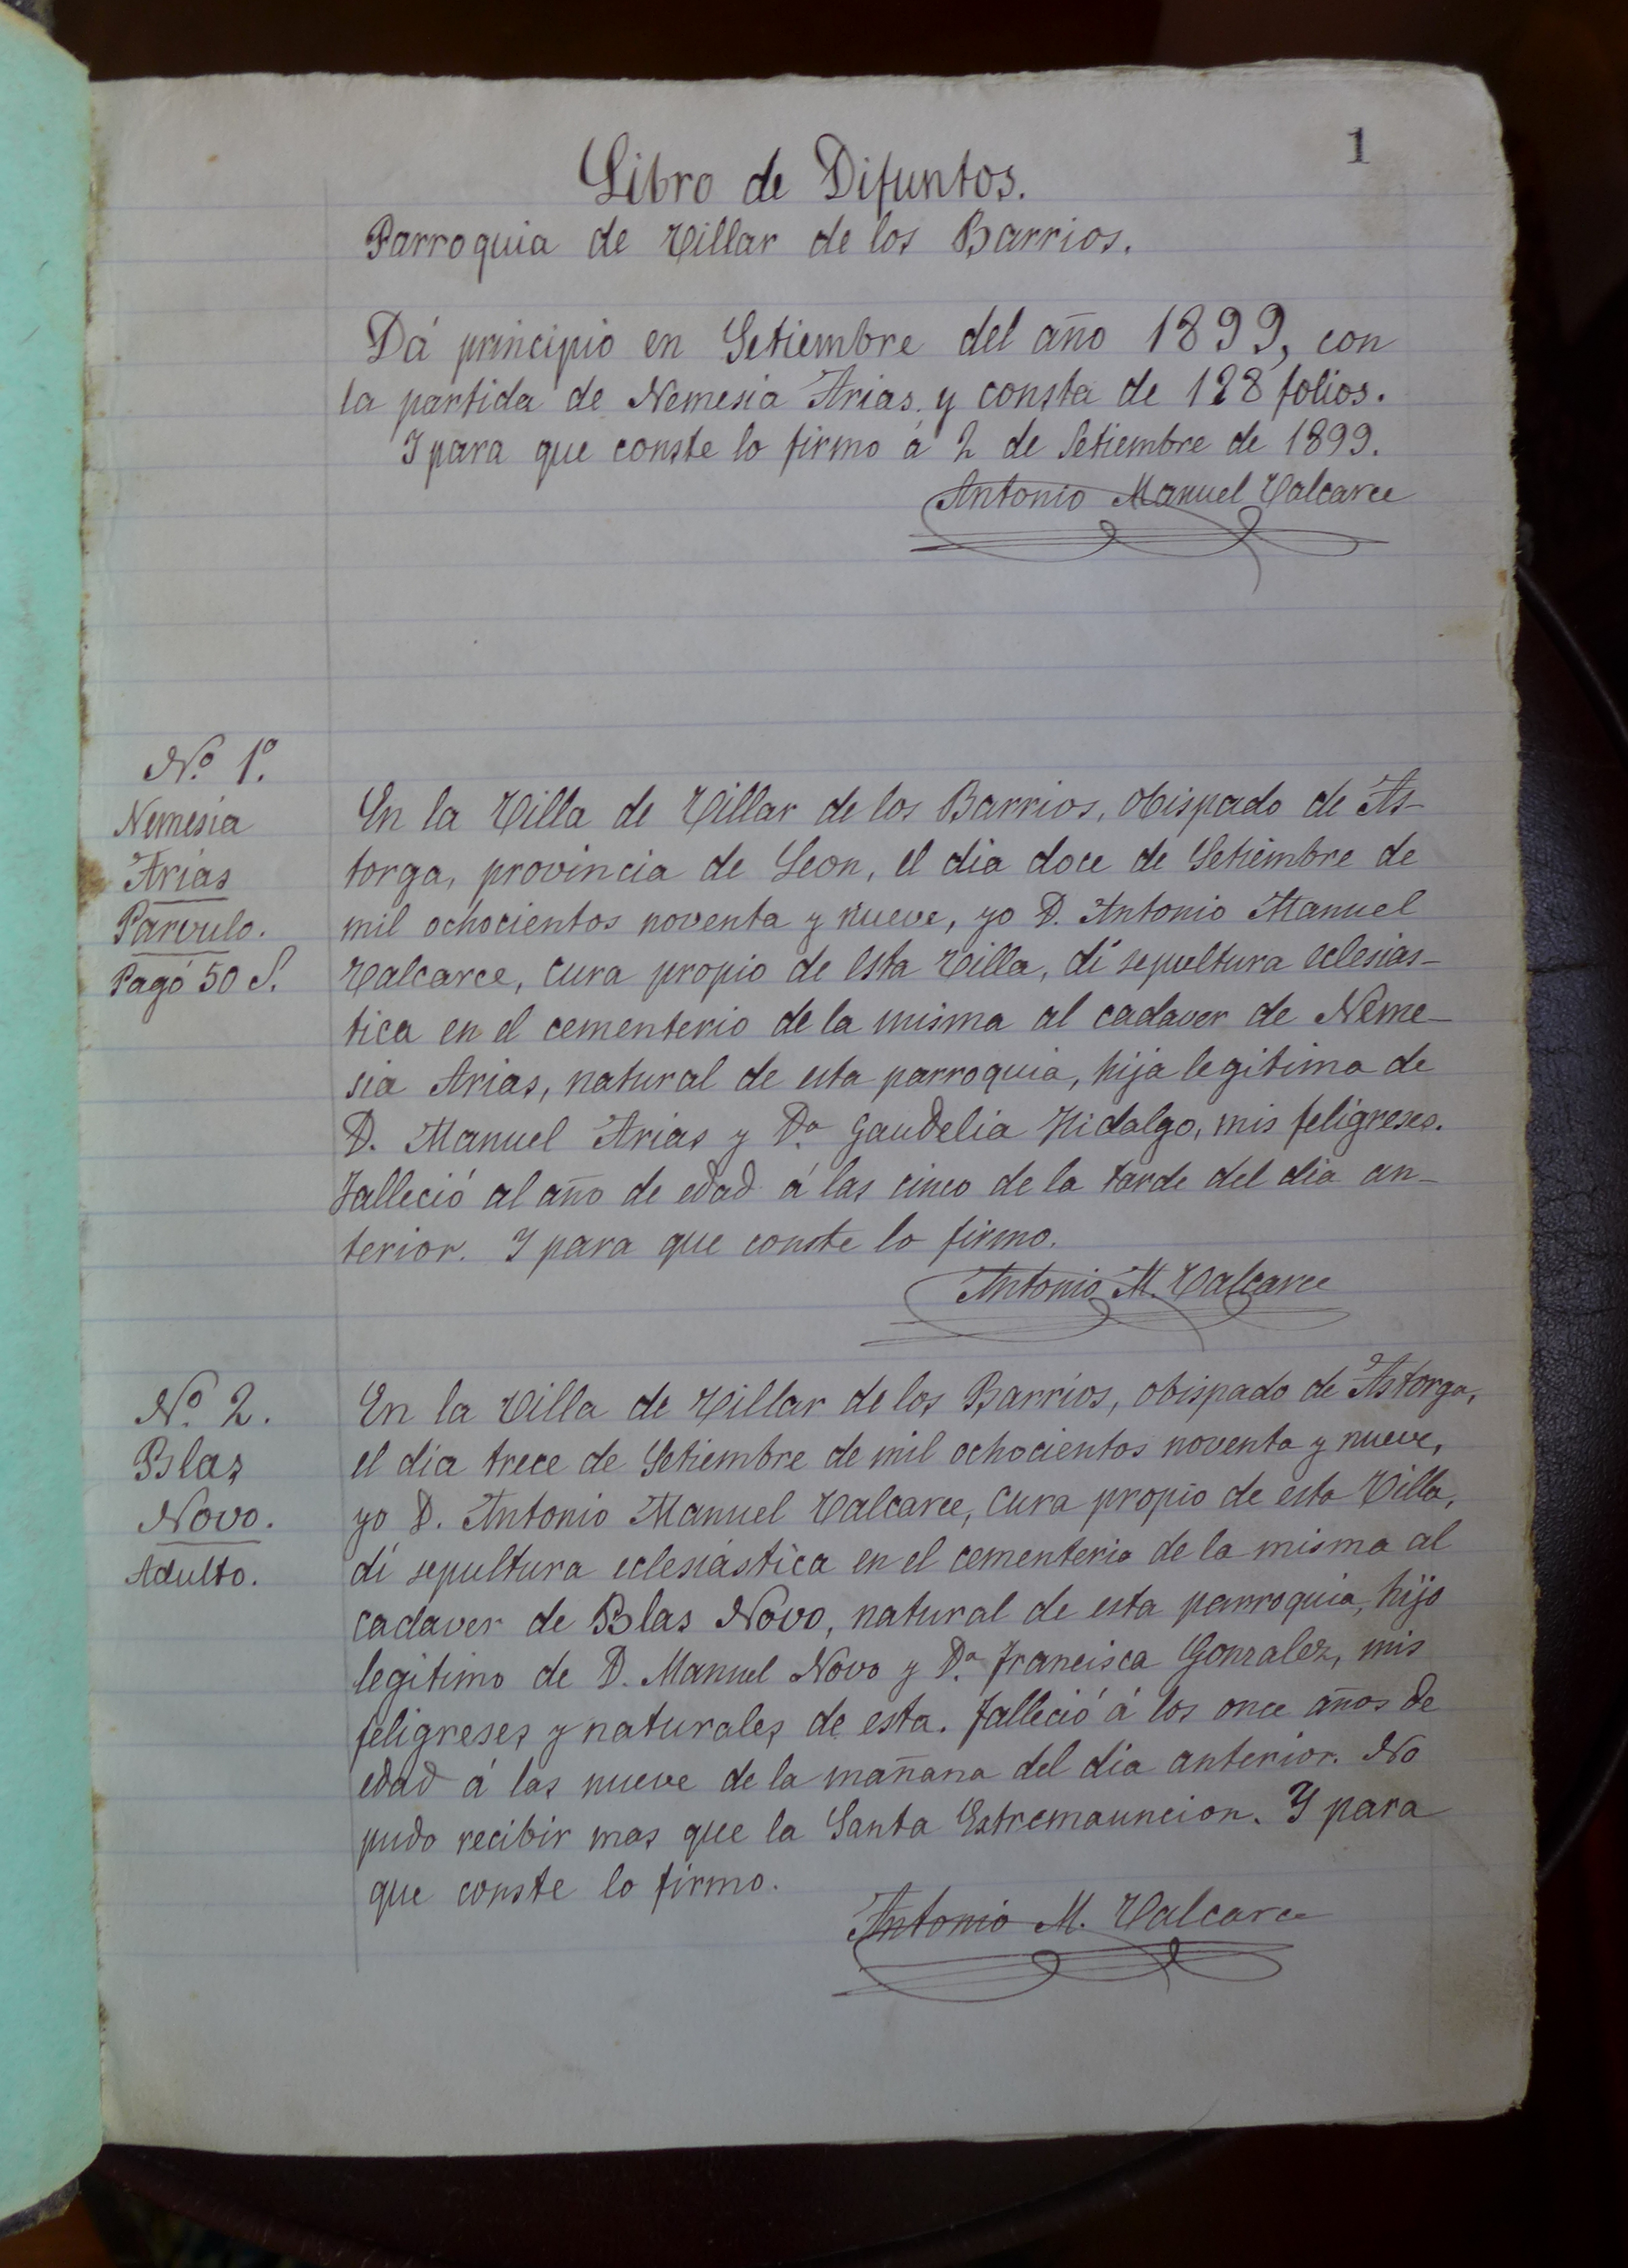 1
Libro de Difuntos.
Parroquia de Villar de los Barrios.
Dá principio en Setiembre del año 1899, con
la partida de Nemesia Arias y consta de 128 folios.
Y para que conste lo firmo á 2 de Setiembre de 1899.
Antonio Manuel Valcarce
Nº 1º.
Nemesia
Arias
Párvulo.
Pagó 50 S.
En la Villa de Villar de los Barrios, obispado de As-
torga, provincia de Leon, el dia doce de Setiembre de
mil ochocientos noventa y nueve, yo D. Antonio Manuel
Valcarce, cura propio de esta Villa, dí sepultura eclesias-
tica en el cementerio de la misma al cadaver de Neme-
sia Arias, natural de esta parroquia, hija legitima de
D. Manuel Arias y Dª Gaudelia Hidalgo, mis feligreses.
Falleció al año de edad á las cinco de la tarde del dia an-
terior. Y para que conste lo firmo.
Antonio M. Valcarce
Nº 2.
Blas
Novo.
Adulto.
En la Villa de Villar de los Barrios, obispado de Astorga,
el dia trece de Setiembre de mil ochocientos noventa y nueve,
yo D. Antonio Manuel Valcarce, Cura propio de esta Villa,
dí sepultura eclesiástica en el cementerio de la misma al
cadaver de Blas Novo, natural de esta parroquia, hijo
legitimo de D. Manuel Novo y Dª Francisca Gonzalez, mis
feligreses y naturales de esta. Falleció á los once años de
edad á las nueve de la mañana del dia anterior. No
pudo recibir mas que la Santa Estremauncion. Y para
que conste lo firmo.
Antonio M. Valcarce